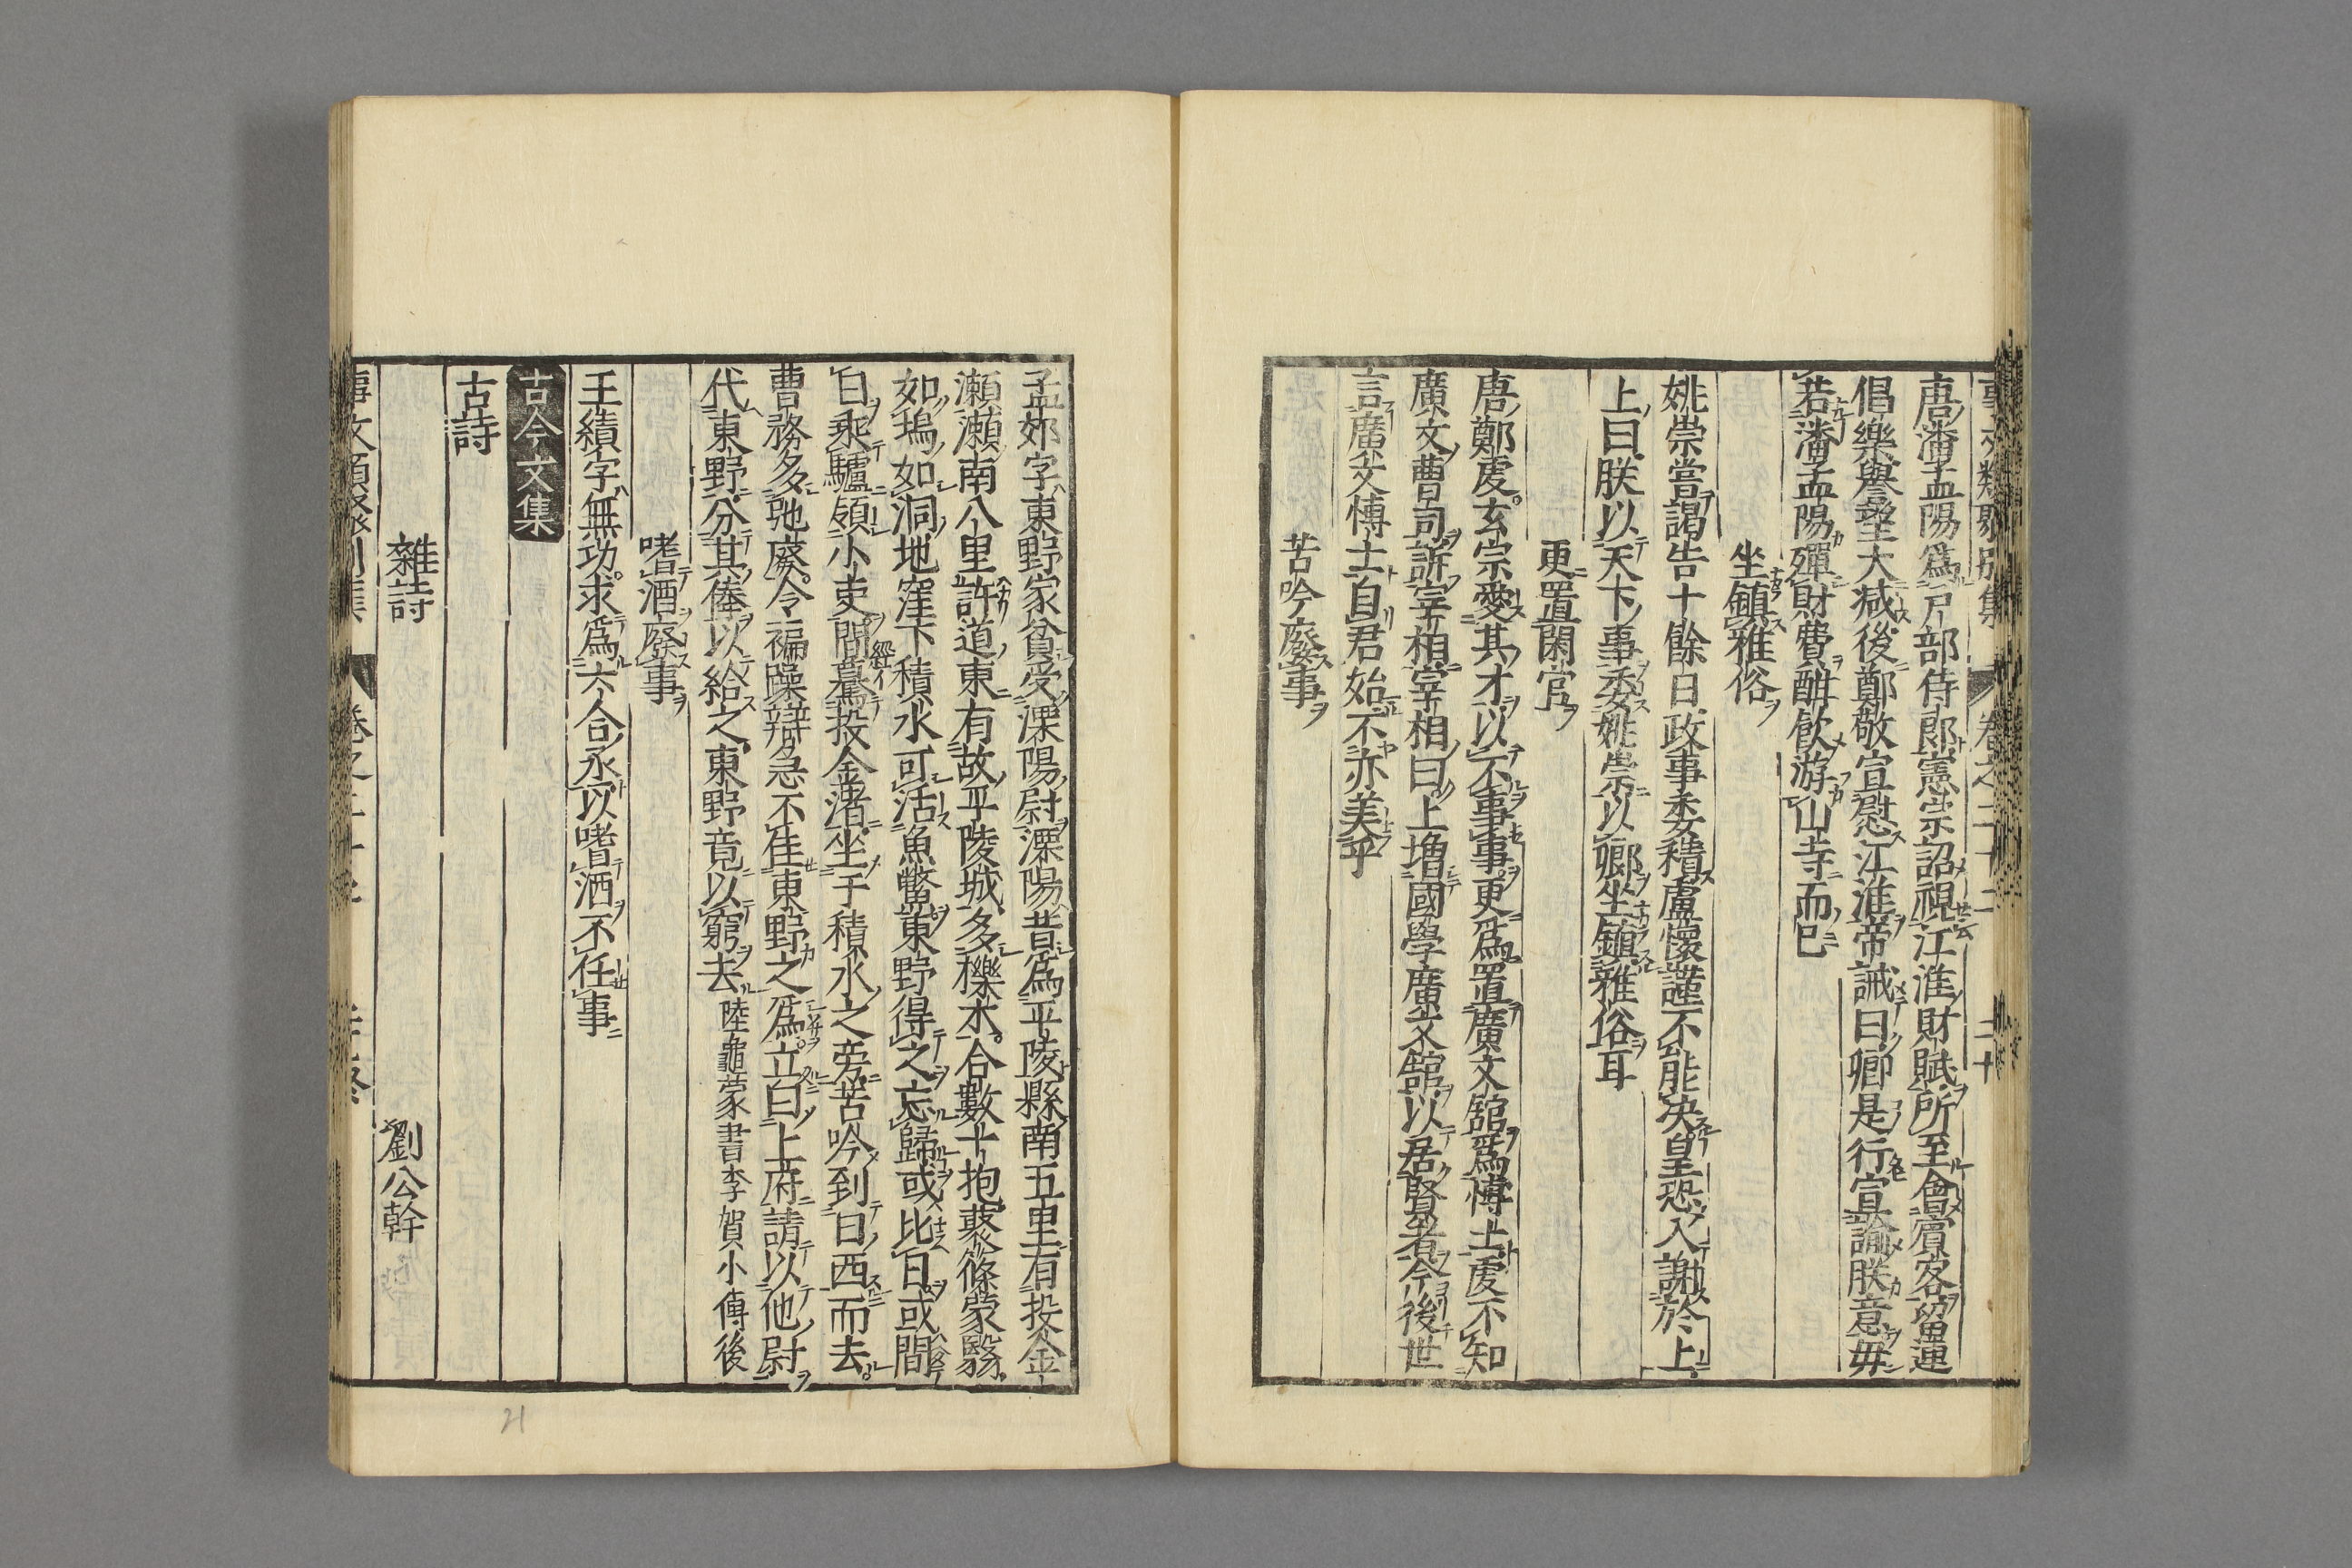 事文類聚別集　卷之二十二　二十
唐潘孟陽爲戶部侍郎憲宗詔視江淮財賦所至會賓客留連
倡樂譽望大減後鄭敬宣慰江淮帝誡曰卿是行宣諭朕意毋
若潘孟陽殫財費酣飲游山寺而已
坐鎮雅俗
姚崇嘗謁告十餘日政事委積盧懷謹不能决皇恐入謝於上
上曰朕以天下事委姚崇以卿坐鎮雅俗耳
更置閑官
唐鄭虔玄宗愛其才以不事事更爲置廣文舘爲博士虔不知
廣文曹司訴宰相宰相曰上增國學廣文舘以居賢者令後世
言廣文博士自君始不亦美乎
苦吟廢事
孟郊字東野家貧受溧陽尉溧陽昔爲平陵縣南五里有投金
瀨瀨南八里許道東有故平陵城多櫟木合數十抱蓁篠蒙翳
如塢如洞地窪下積水可活魚鱉東野得之忘歸或比日或間
日乘驢領小吏經驀投金渚坐于積水之旁苦吟到日西而去
曹務多弛廢令褊躁辯急不佳東野之爲立白上府請以他尉
代東野分其俸以給之東野竟以窮去陸龜蒙書李賀小傳後
嗜酒廢事
王績字無功求爲六合丞以嗜酒不任事
古今文集
古詩
雜詩　劉公幹